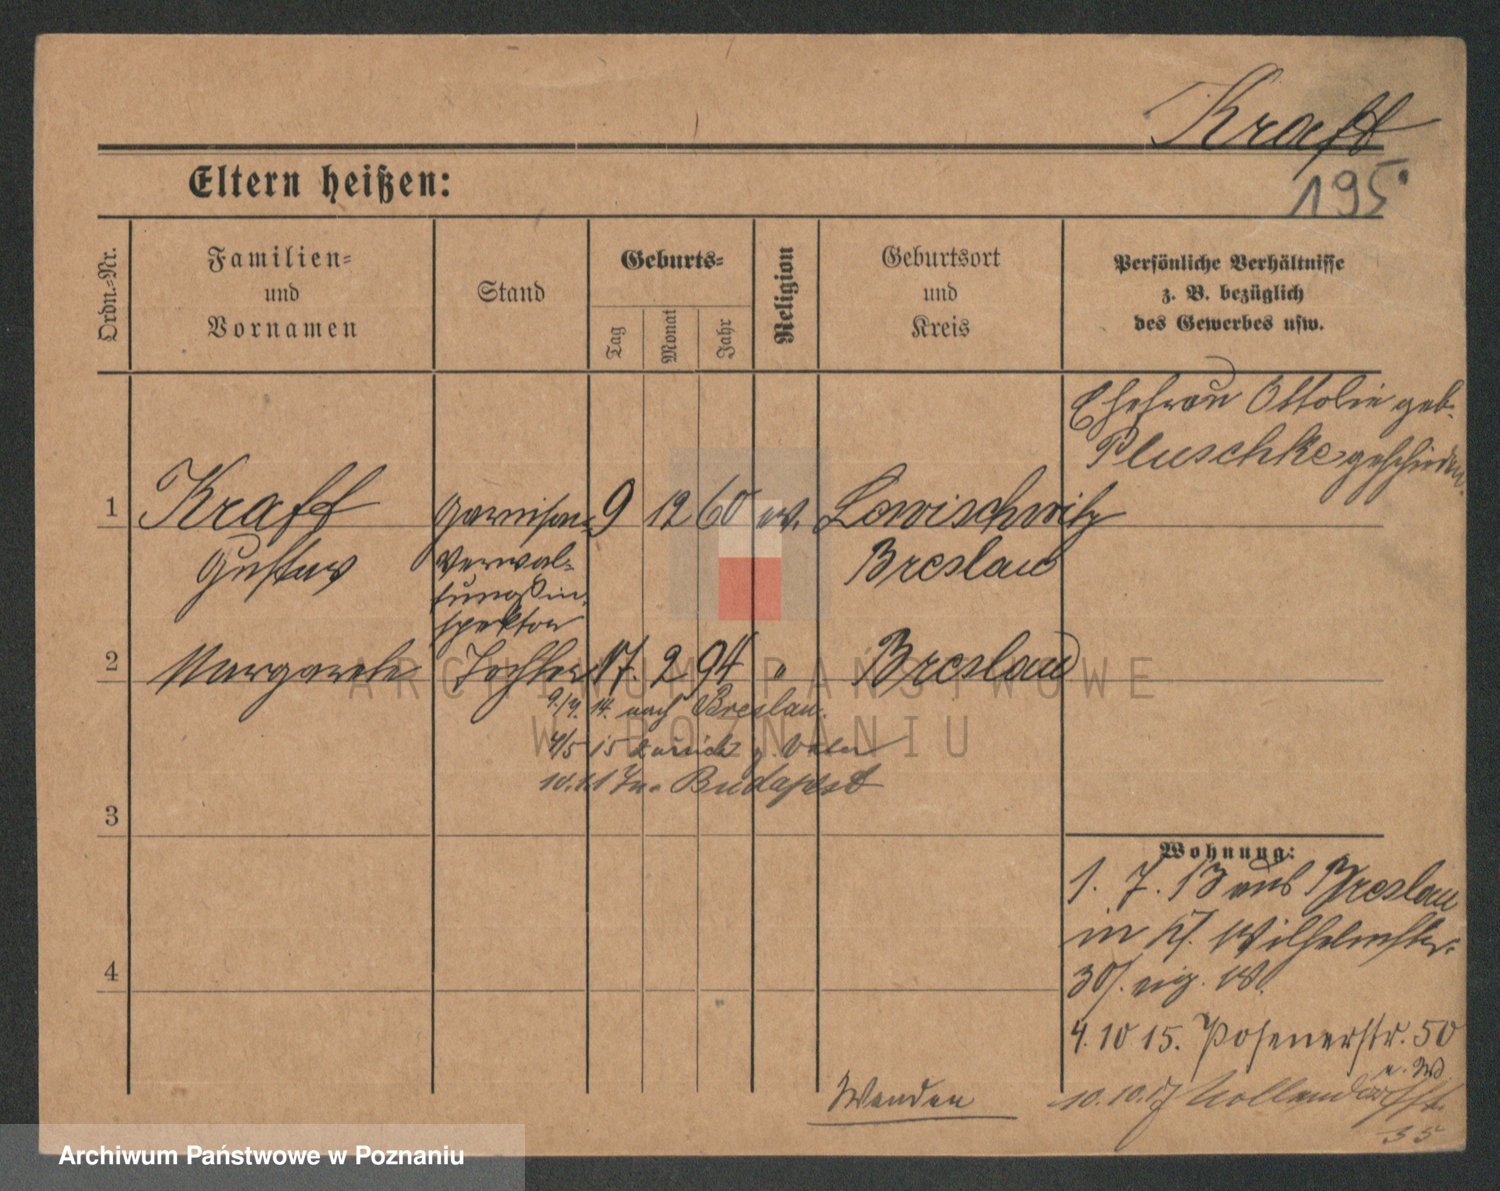 Kraft
195
Eltern heißen:
Ordn.-Nr.
Familien-
und
Vornamen
Stand
Geburts-
Tag
Monat
Jahr
Religion
Geburtsort
und
Kreis
Persönliche Verhältnisse
z. B. bezüglich
des Gewerbes usw.
Ehefrau Ottolie geb.
Pluschke geschieden.
1 Kraft Garnison- 9 12 60 ev. Lowischwitz
Gustav Verwal- Breslau
tungsin-
spektor
2 Margarete Tochter 17. 2 94 " Breslau
9/9. 14. nach Breslau.
4/5 15 zurück z. Vater
10.1.17 n. Budapest
3
Wohnung:
1. 7. 13 aus Breslau
in Wilhelmstr.
30/. eig. W.
4
4. 10 15. Posenerstr. 50
e. W
10.10.17 Nollendorfstr.
35
Wenden
ARCHIWUM PAŃSTWOWE
W POZNANIU
Archiwum Państwowe w Poznaniu